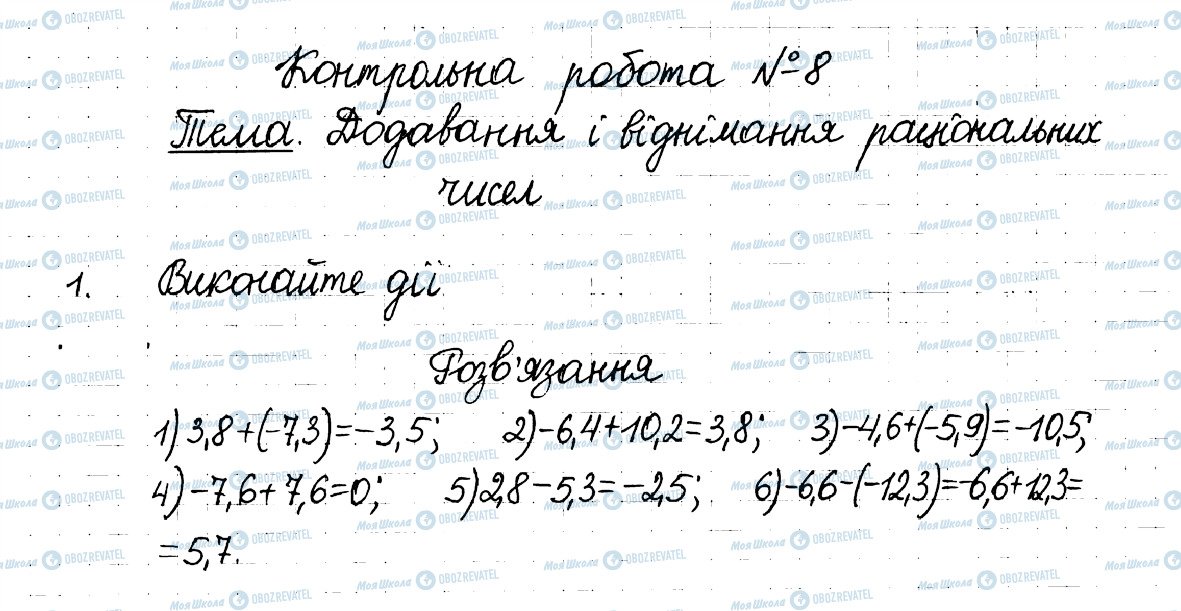 Контрольна робота №8
Тема. Додавання і віднімання раціональних
чисел
1. Виконайте дії
Розв'язання
1) 3,8+(-7,3)=-3,5; 2) -6,4+10,2=3,8; 3) -4,6+(-5,9)=-10,5;
4) -7,6+7,6=0; 5) 2,8-5,3=-2,5; 6) -6,6-(-12,3)=-6,6+12,3=
=5,7.
МояШкола OBOZREVATEL